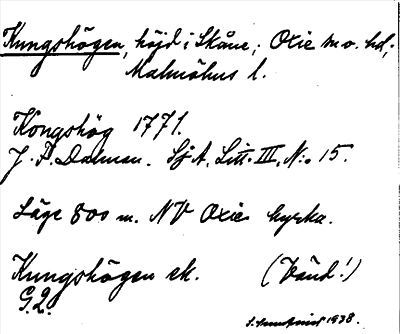 Kungshögen, höjd i Skåne; Oxie m.o. hd;
Malmöhus l.
Kongshög 1771.
J. P. Dalman. Sj A, Litt. III, N:o 15.
Läge 800 m. NV Oxie kyrka.
Kungshögen ek. (Vänd!)
G.2.
1938.